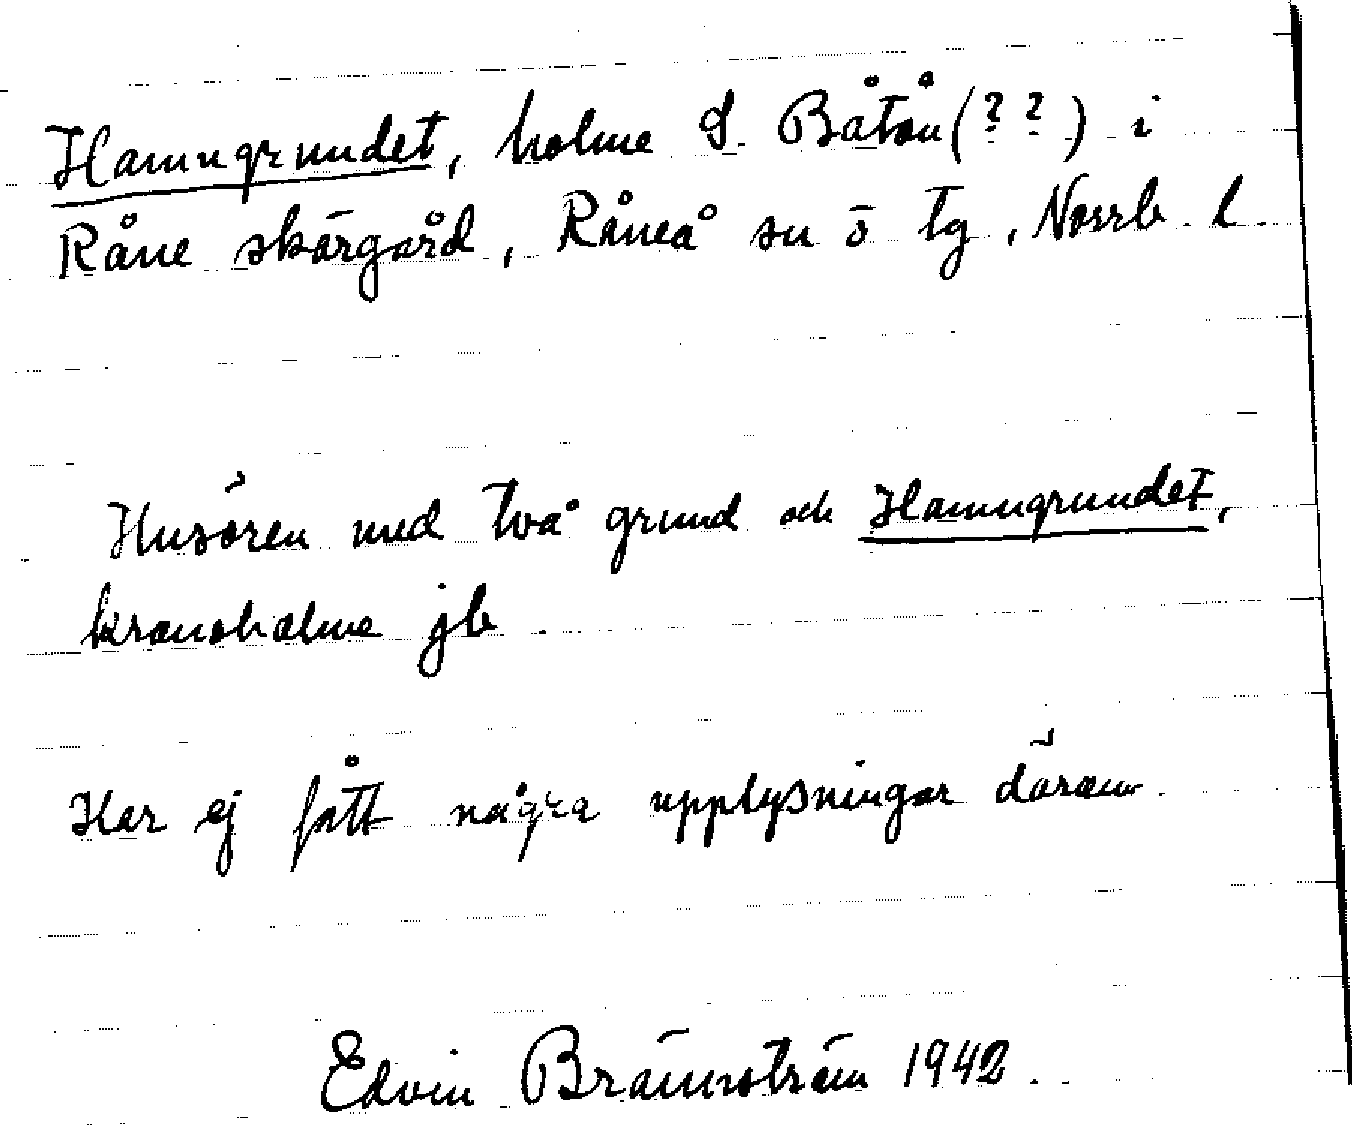 Hamngrundet, holme S. Båtön (? ?) i
Råne skärgård, Råneå sn ö tg, Norrb. l.
Husören med två grund och Hamngrundet,
kronoholme jb
Har ej fått några upplysningar därom.
Edvin Brännström 1942.